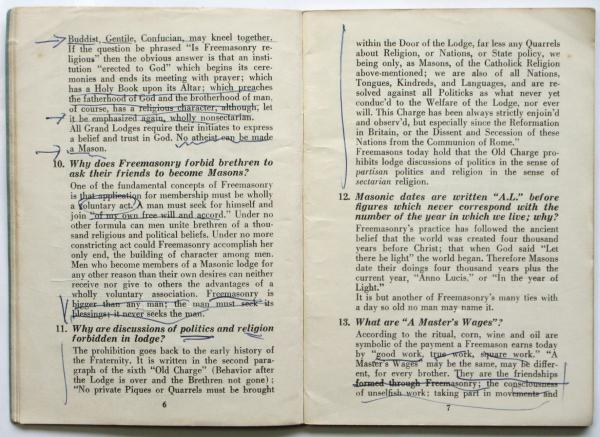 Buddist, Gentile, Confucian, may kneel together.
If the question be phrased "Is Freemasonry re-
ligious" then the obvious answer is that an insti-
tution "erected to God" which begins its cere-
monies and ends its meeting with prayer; which
has a Holy Book upon its Altar; which preaches
the fatherhood of God and the brotherhood of man,
of course, has a religious character, although, let
it be emphasized again, wholly nonsectarian.
All Grand Lodges require their initiates to express
a belief and trust in God. No atheist can be made
a Mason.
10. Why does Freemasonry forbid brethren to
ask their friends to become Masons?
One of the fundamental concepts of Freemasonry
is that application for membership must be wholly
a voluntary act. A man must seek for himself and
join "of my own free will and accord." Under no
other formula can men unite brethren of a thou-
sand religious and political beliefs. Under no more
constricting act could Freemasonry accomplish her
only end, the building of character among men.
Men who become members of a Masonic lodge for
any other reason than their own desires can neither
receive nor give to others the advantages of a
wholly voluntary association. Freemasonry is
bigger than any man; the man must seek its
blessings; it never seeks the man.
11. Why are discussions of politics and religion
forbidden in lodge?
The prohibition goes back to the early history of
the Fraternity. It is written in the second para-
graph of the sixth "Old Charge" (Behavior after
the Lodge is over and the Brethren not gone) ;
"No private Piques or Quarrels must be brought
6
within the Door of the Lodge, far less any Quarrels
about Religion, or Nations, or State policy, we
being only, as Masons, of the Catholick Religion
above-mentioned; we are also of all Nations,
Tongues, Kindreds, and Languages, and are re-
solved against all Politicks as what never yet
conduc'd to the Welfare of the Lodge, nor ever
will. This Charge has been always strictly enjoin'd
and observ'd, but especially since the Reformation
in Britain, or the Dissent and Secession of these
Nations from the Communion of Rome."
Freemasons today hold that the Old Charge pro-
hibits lodge discussions of politics in the sense of
partisan politics and religion in the sense of
sectarian religion.
12. Masonic dates are written "A.L." before
figures which never correspond with the
number of the year in which we live; why?
Freemasonry's practice has followed the ancient
belief that the world was created four thousand
years before Christ; that when God said "Let
there be light" the world began. Therefore Masons
date their doings four thousand years plus the
current year, "Anno Lucis," or "In the year of
Light."
It is but another of Freemasonry's many ties with
a day so old no man may name it.
13. What are "A Master's Wages"?
According to the ritual, corn, wine and oil are
symbolic of the payment a Freemason earns today
by "good work, true work, square work." "A
Master's Wages" may be the same, may be differ-
ent, for every brother. They are the friendships
formed through Freemasonry; the consciousness
of unselfish work; taking part in movements and
7